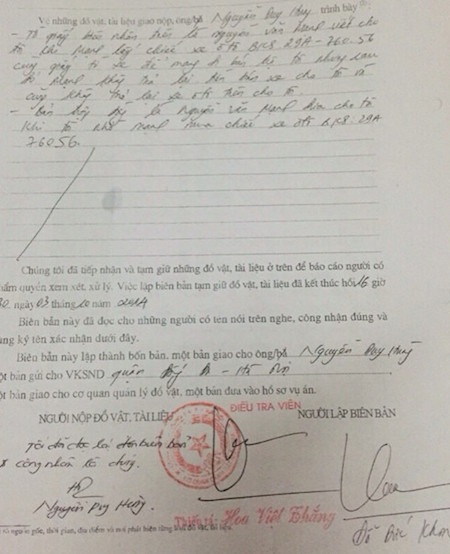 Về những đồ vật, tài liệu giao nộp, ông/bà Nguyễn Duy Hưng trình bày
- Tờ giấy bán nhận trên là Nguyễn Văn Mạnh viết cho
tôi khi Mạnh lấy chiếc xe ôtô BKS 29A-760.56
cùng giấy tờ xe để mang đi bán hộ tôi nhưng sau
đó Mạnh không trả lại tiền bán xe cho tôi và
cũng không trả lại xe ôtô trên cho tôi.
là Nguyễn Văn Mạnh đưa cho tôi
khi tôi nhờ Mạnh mua chiếc xe ôtô BKS: 29A
76056.
Chúng tôi đã tiếp nhận và tạm giữ những đồ vật, tài liệu ở trên để báo cáo người có
thẩm quyền xem xét, xử lý. Việc lập biên bản tạm giữ đồ vật, tài liệu đã kết thúc hồi 16 giờ
30 ngày 03 tháng 10 năm 2014
Biên bản này đã đọc cho những người có tên nói trên nghe, công nhận đúng và
cùng ký tên xác nhận dưới đây.
Biên bản này lập thành bốn bản, một bản giao cho ông/bà Nguyễn Duy Hưng
một bản gửi cho VKSND quận
một bản giao cho cơ quan quản lý đồ vật, một bản đưa vào hồ sơ vụ án.
NGƯỜI NỘP ĐỒ VẬT, TÀI LIỆU ĐIỀU TRA VIÊN NGƯỜI LẬP BIÊN BẢN
Tôi đã đọc lại biên bản
công nhận là đúng.
Nguyễn Duy Hưng
Thiếu tá: Hoa Việt Thắng
Đỗ Đức